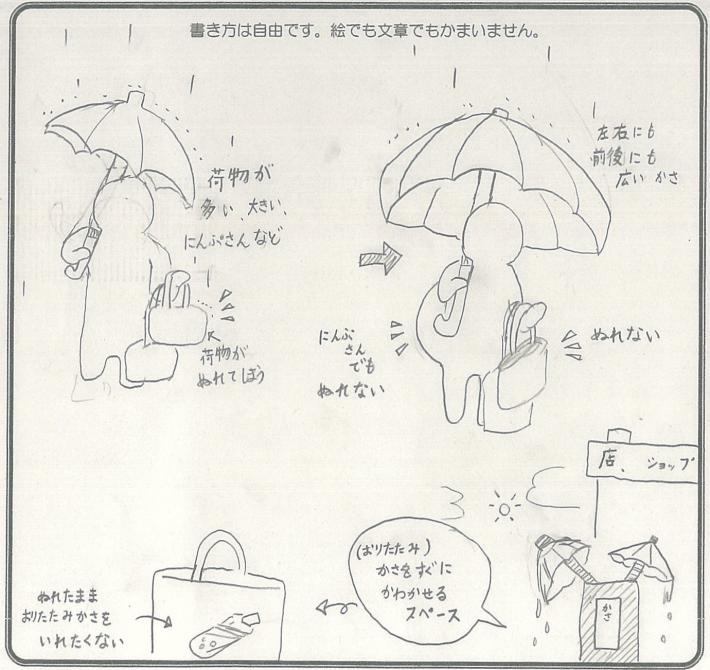 書き方は自由です。絵でも文章でもかまいません。
荷物が
多い、大きい、
にんぷさんなど
荷物が
ぬれてしまう
左右にも
前後にも
広い かさ
にんぷ
さん
でも
ぬれない
ぬれない
店、ショップ
(おりたたみ)
かさをすぐに
かわかせる
スペース
かさ
ぬれたまま
おりたたみかさを
いれたくない